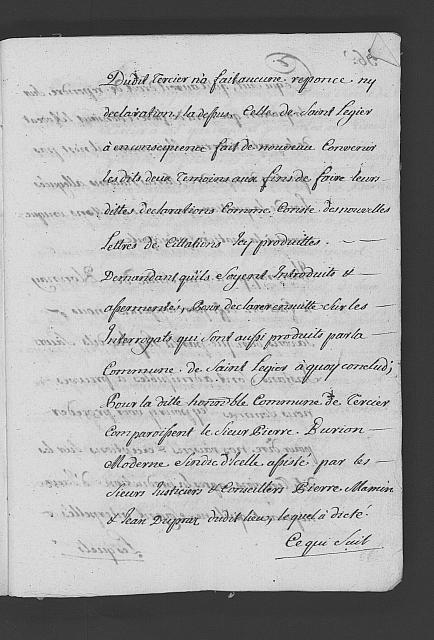 Dudit Tercier n'a fait aucune responce ny
declaration, la dessus, Celle de Saint Legier
à en consequence fait de nouveau Convenir
lesdits deux Temoins aux fins de faire leurs
dittes declarations comme Conste des nouvelles
Lettres de Cittations Icy produittes. —
Demandant qu'ils Soyent Introduits &
assermentés, Pour declarer ensuitte Sur les —
Interrogats qui sont aussi produits par la
Commune de Saint Legier à quoy conclud;
Pour la ditte honorable Commune de Tercier
Comparoissent le Sieur Pierre Burion —
Moderne Sindic d'Icelle assisté par les
Sieurs Justiciers & Conseillers Pierre Mamin
& Jean Dupraz dudit lieu, lequel à dicté
Ce qui Suit